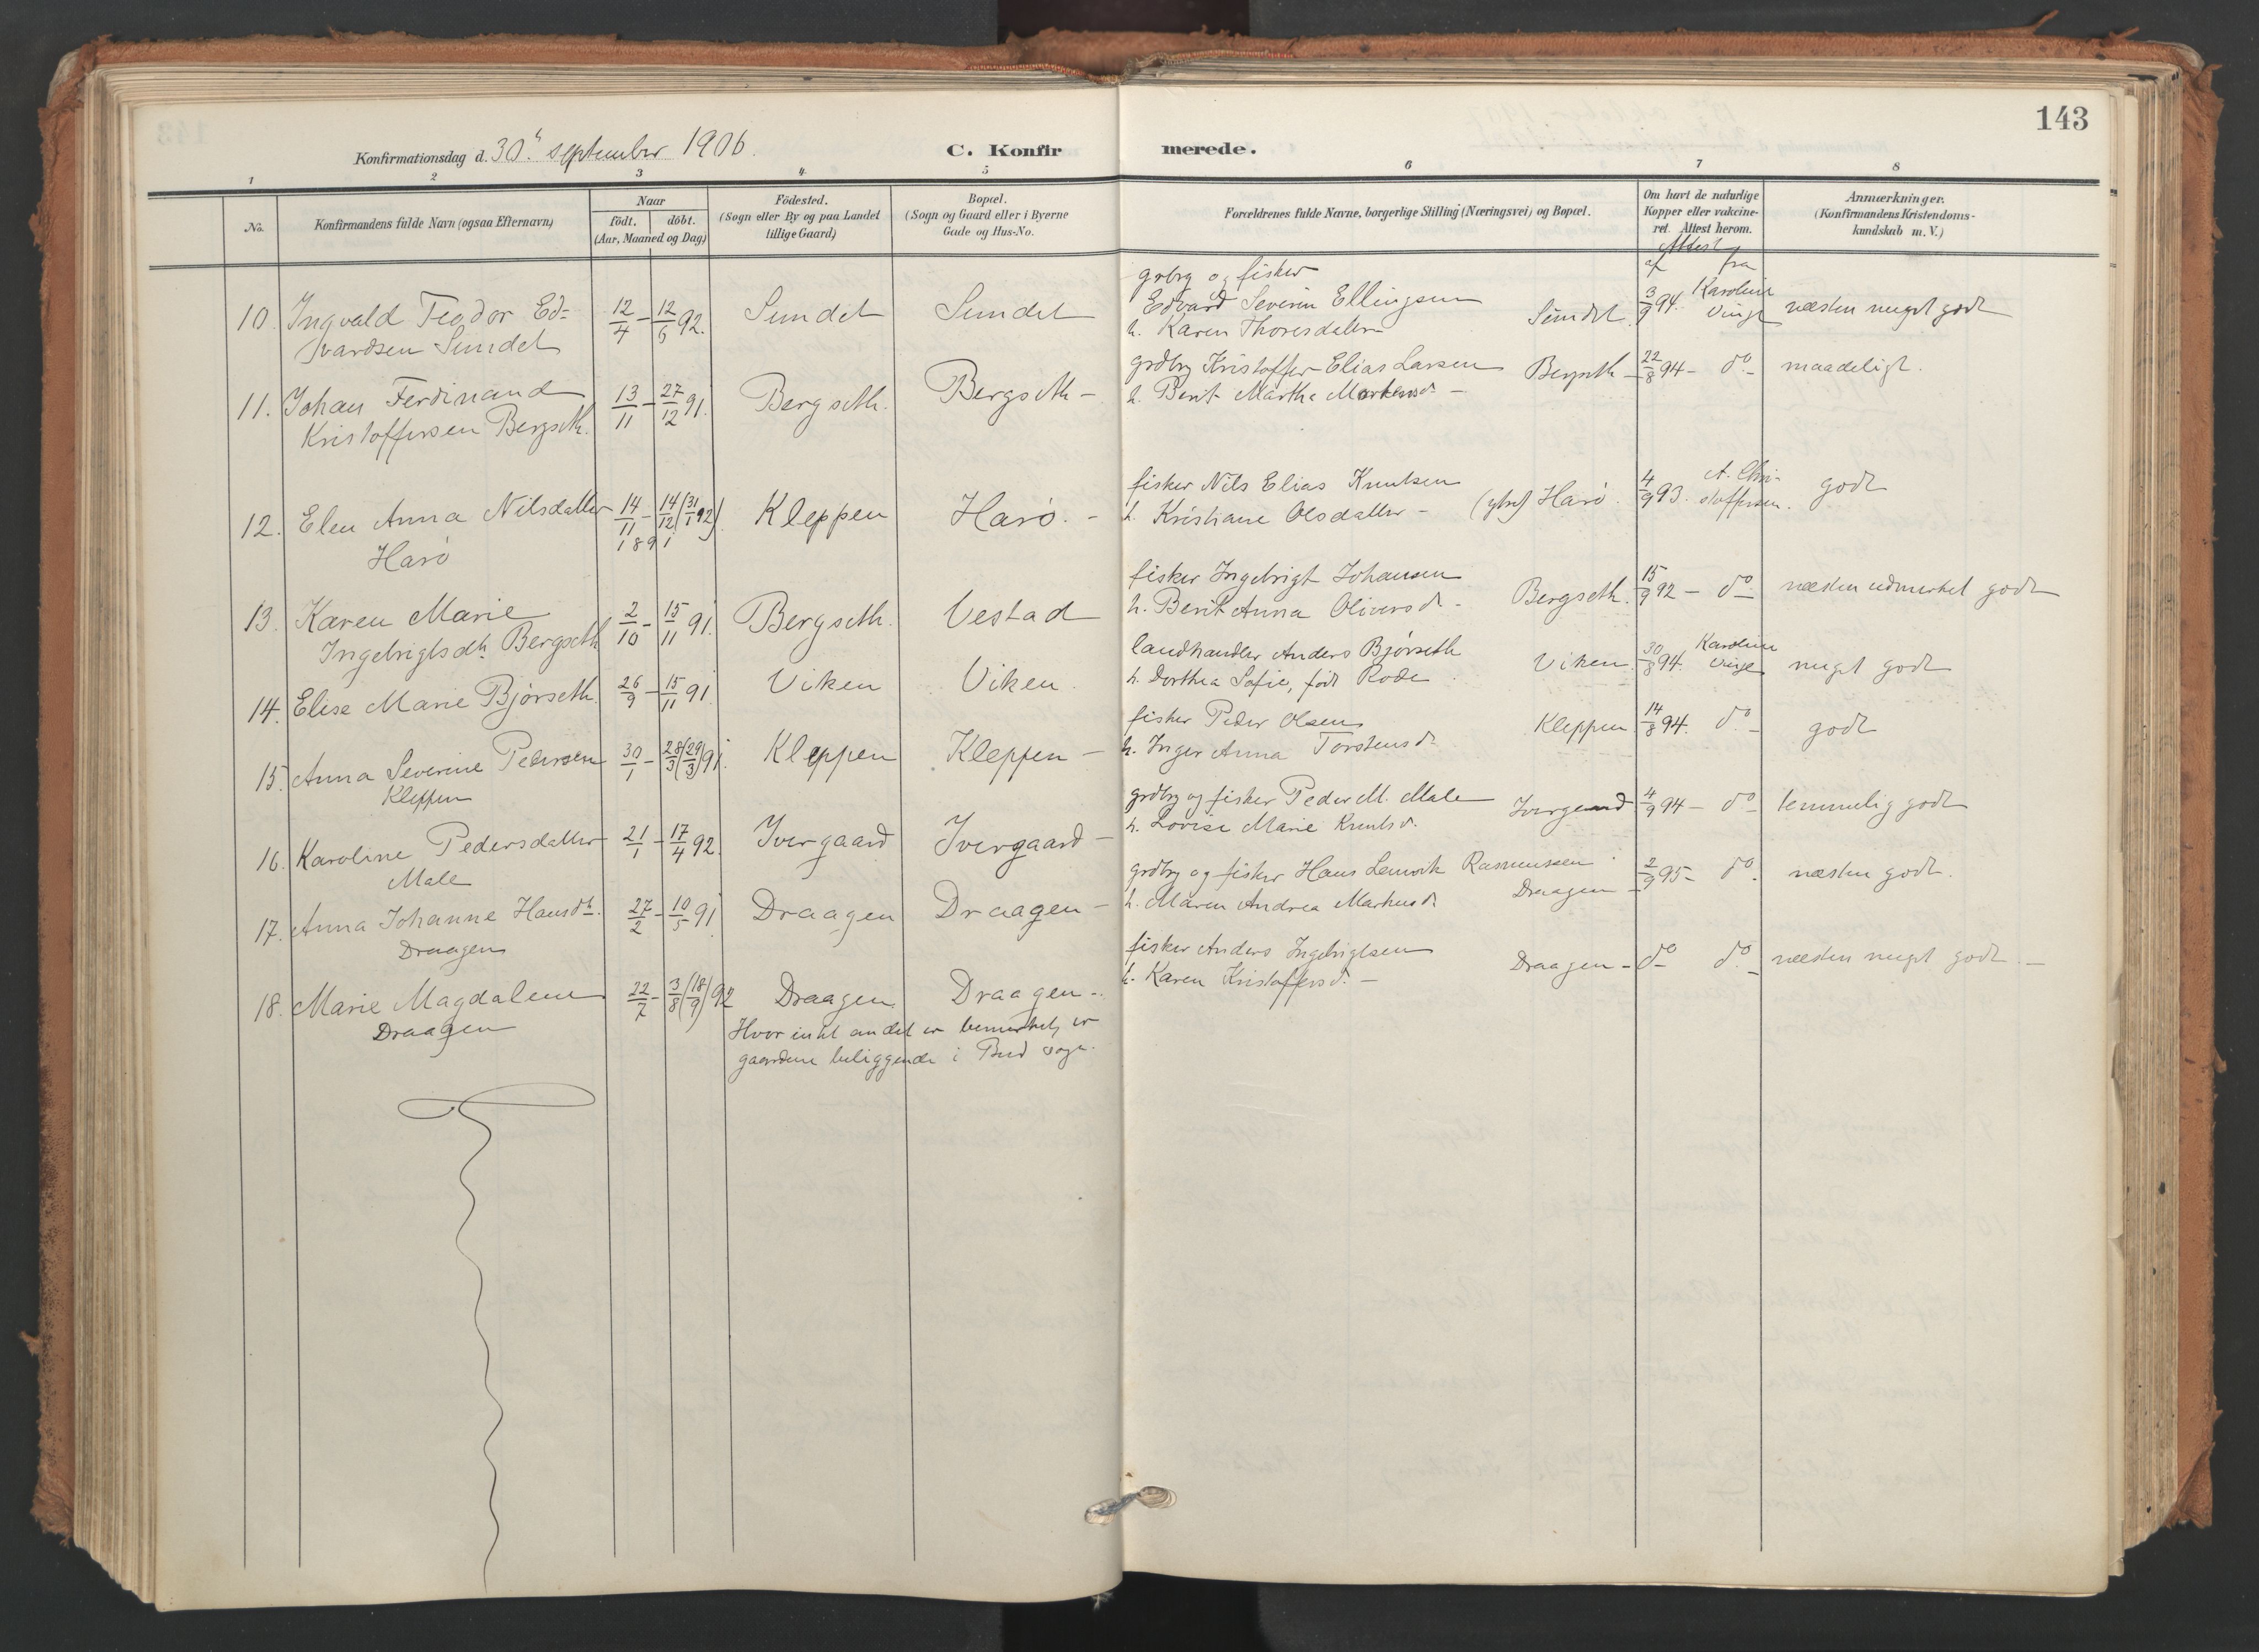 143
Konfirmationsdag d. 30. september 1906.
C. Konfirmerede.
1 2 3 4. 5 6 7 8
No.
Konfirmandens fulde Navn (ogsaa Efternavn)
Naar
födt. döbt.
(Aar, Maaned og Dag)
Födested.
(Sogn eller By og paa Landet
tillige Gaard)
Bopæl.
(Sogn og Gaard eller i Byerne
Gade og Hus-No.
Forældrenes fulde Navne, borgerlige Stilling (Næringsvei) og Bopæl.
Om havt de naturlige
Kopper eller vakcine-
ret. Attest herom.
Anmærkninger.
(Konfirmandens Kristendoms-
kundskab m. V.)
Attest
af fra
grbrg og fisker
10. Ingvald Teodor Ed- 12/4 - 12/6 92. Sundet Sundet Edvard Severin Ellingsen Sundet 3/9 94. Karoline Vinje næsten meget godt
vardsen Sundet h. Karen Thoresdatter
11. Johan Ferdinand 13/11 - 27/12 91. Bergseth. Bergseth - grdbrg Kristoffer Elias Larsen Bergseth - 22/8 94 - do - maadeligt.
Kristoffersen Bergseth. h. Berit Martha Martensd. -
12. Elen Anna Nilsdatter 14/11 - 14/12 (31/1 92) Kleppen Harö. - fisker Nils Elias Knutsen (ytre) Harö. 4/9 93. A. Chri- godt
Harö 1891 h. Kristiane Olsdatter - stoffersen.
13. Karen Marie 2/10 - 15/11 91. Bergseth. Vestad fisker Ingebrigt Johansen Bergseth. 15/9 92 - do næsten udmerket godt
Ingebrigtsdtr. Bergseth h. Berit Anna Oliversd. -
14. Elise Marie Björseth. 26/9 - 15/11 91 Viken Viken. landhandler Anders Björseth Viken. 30/8 94. Karoline Vinje meget godt
h. Dorthea Sofie, födt Rode
15. Anna Severine Pedersen 30/1 - 28/3 (29/3) 91. Kleppen Kleppen - fisker Peder Olsen Kleppen 14/8 94. do - godt
Kleppen h. Inger Anna Torstensd.
16. Karoline Pedersdatter 21/1 - 17/4 92. Ivergaard Ivergaard - grdbrg og fisker Peder M. Male Ivergaard 4/9 94 - do temmelig godt
Male h. Lovise Marie Knutsd.
17. Anna Johanne Hansdtr. 27/2 - 10/5 91 Draagen Draagen - grdbrg og fisker Hans Rasmussen Draagen 2/9 95 - do næsten godt.
Draagen h. Maren Andrea Markusd.
18. Marie Magdalene 22/7 - 3/8 (18/9) 92 Draagen Draagen - fisker Anders Ingebrigtsen Draagen - do do næsten meget godt. -
Draagen h. Karen Kristoffersd. -
Hvor intet andet er bemerket, er
gaardene beliggende i Bud sogn.